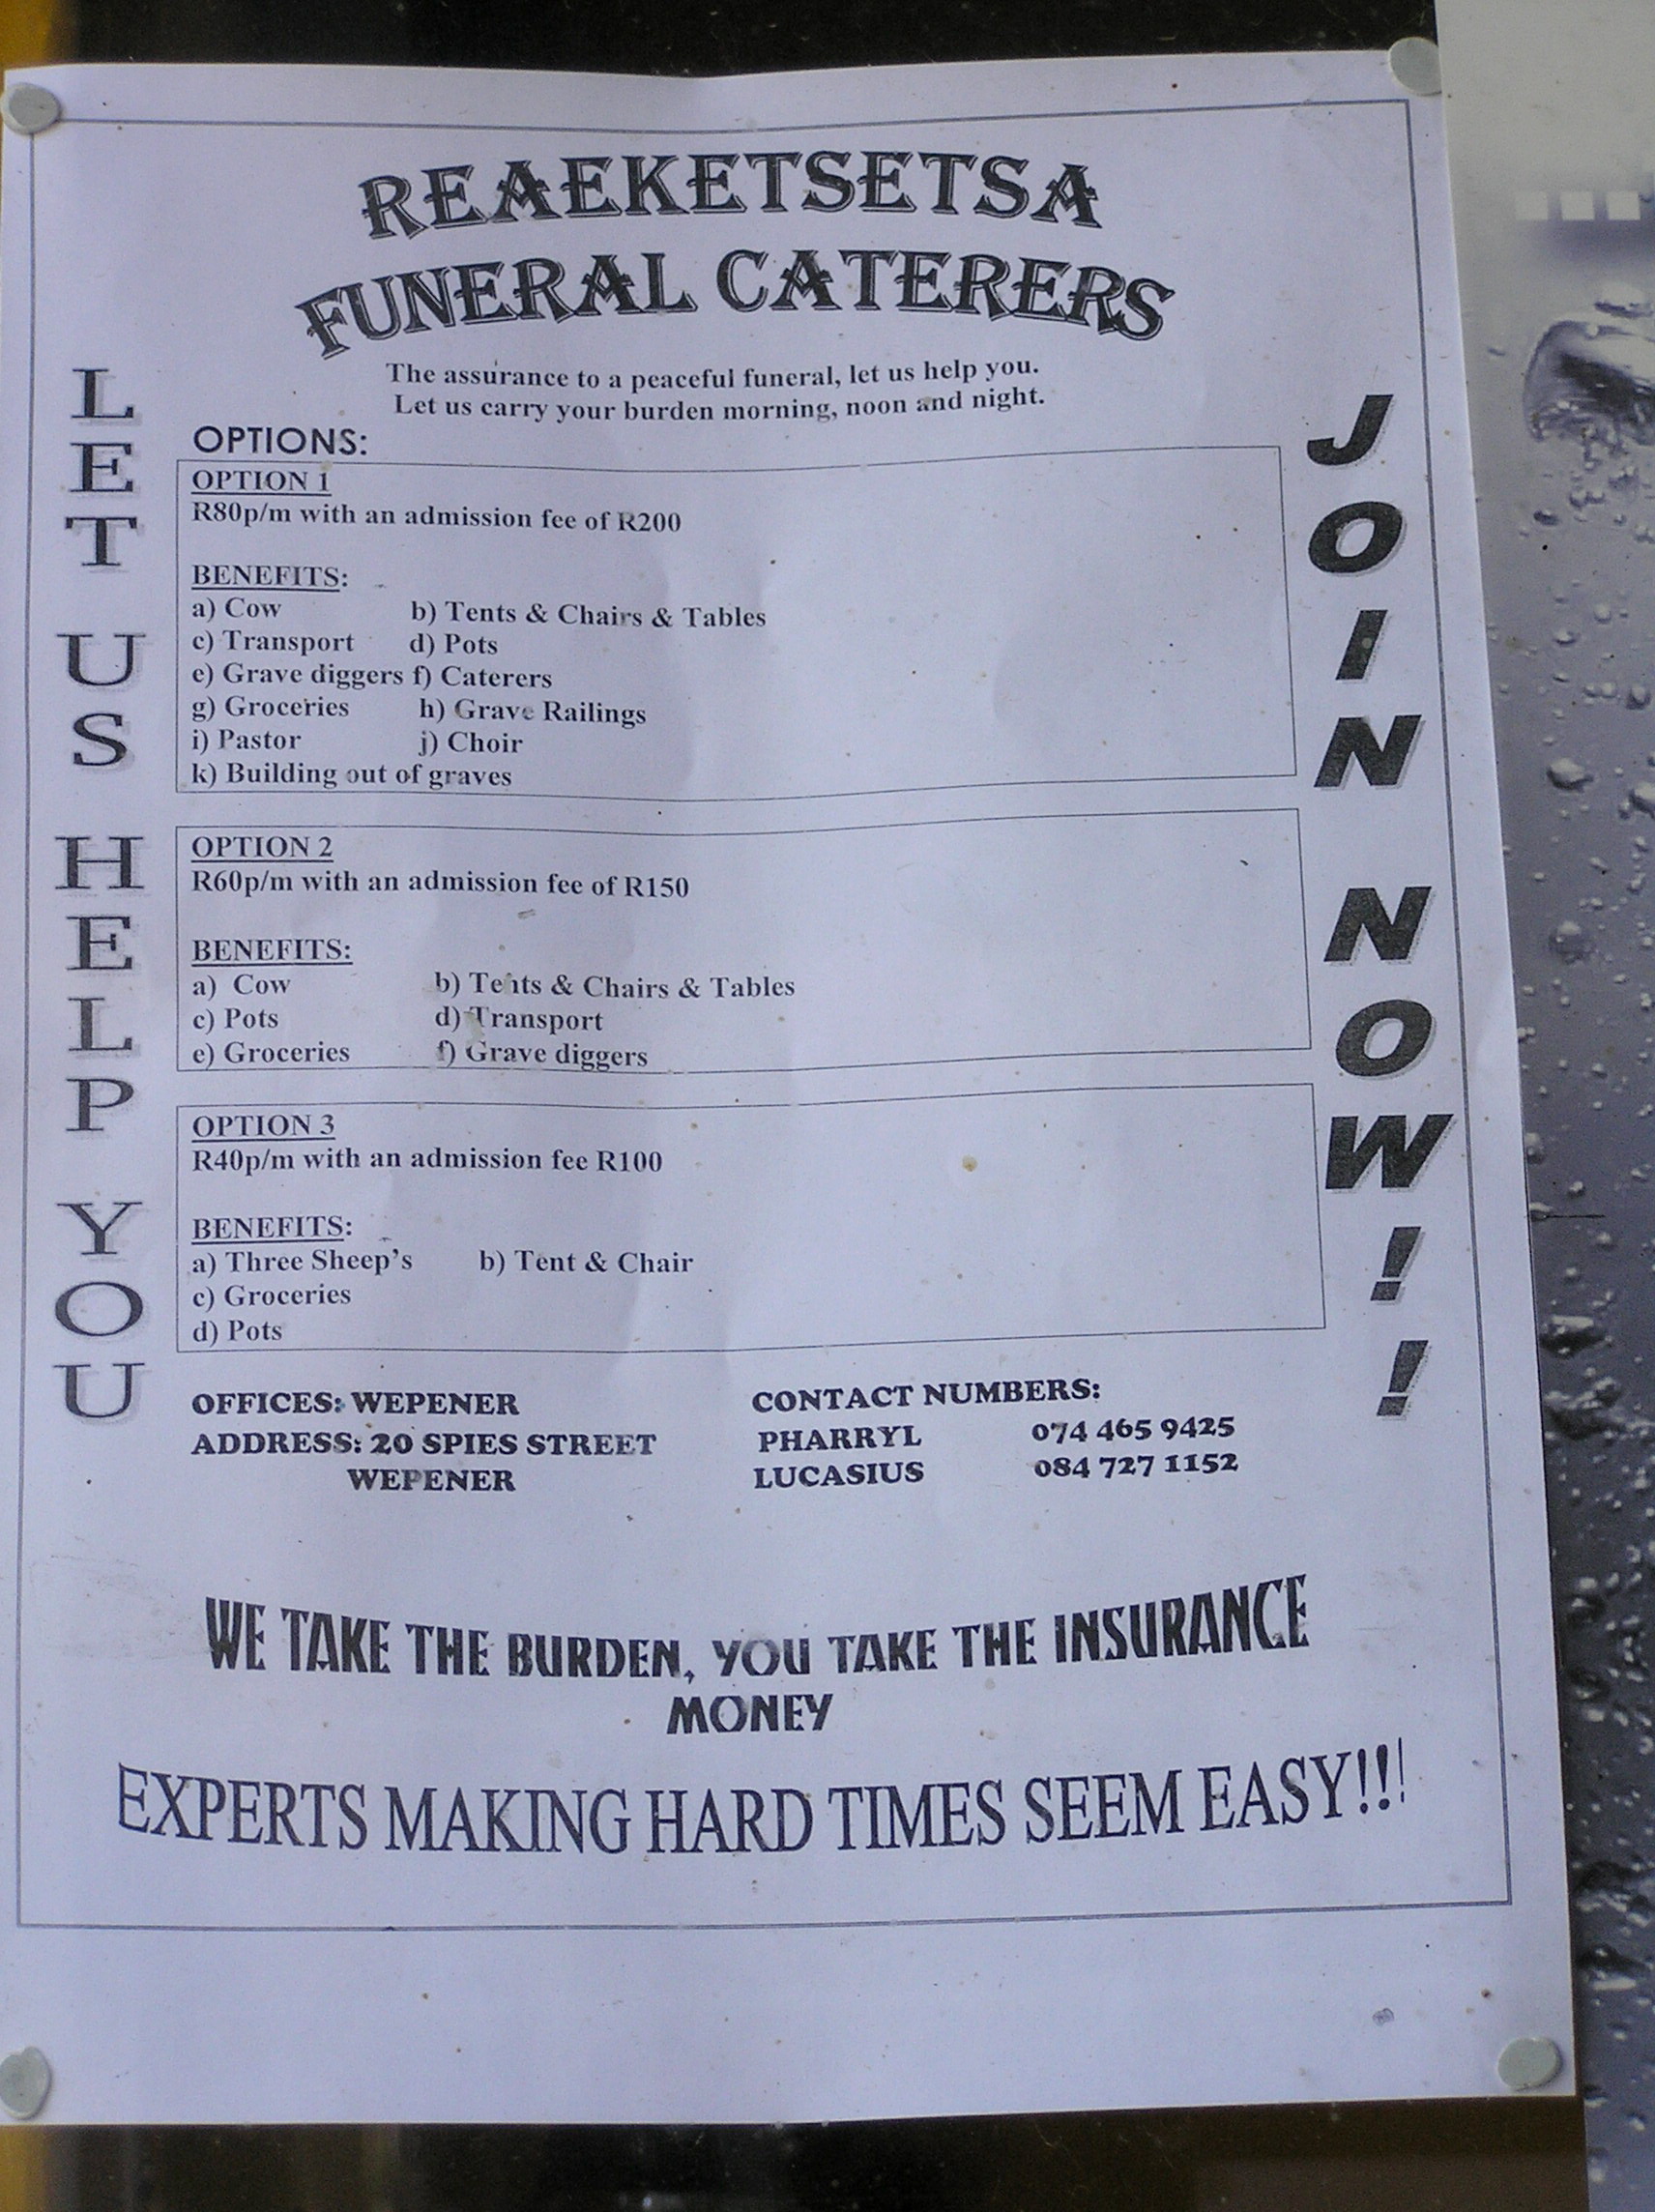 REAEKETSETSA
FUNERAL CATERERS
The assurance to a peaceful funeral, let us help you.
Let us carry your burden morning, noon and night.
LET US HELP YOU
JOIN NOW!!
OPTIONS:
OPTION 1
R80p/m with an admission fee of R200
BENEFITS:
a) Cow b) Tents & Chairs & Tables
c) Transport d) Pots
e) Grave diggers f) Caterers
g) Groceries h) Grave Railings
i) Pastor j) Choir
k) Building out of graves
OPTION 2
R60p/m with an admission fee of R150
BENEFITS:
a) Cow b) Tents & Chairs & Tables
c) Pots d) Transport
e) Groceries f) Grave diggers
OPTION 3
R40p/m with an admission fee R100
BENEFITS:
a) Three Sheep's b) Tent & Chair
c) Groceries
d) Pots
OFFICES: WEPENER
ADDRESS: 20 SPIES STREET
WEPENER
CONTACT NUMBERS:
PHARRYL 074 465 9425
LUCASIUS 084 727 1152
WE TAKE THE BURDEN, YOU TAKE THE INSURANCE
MONEY
EXPERTS MAKING HARD TIMES SEEM EASY!!!